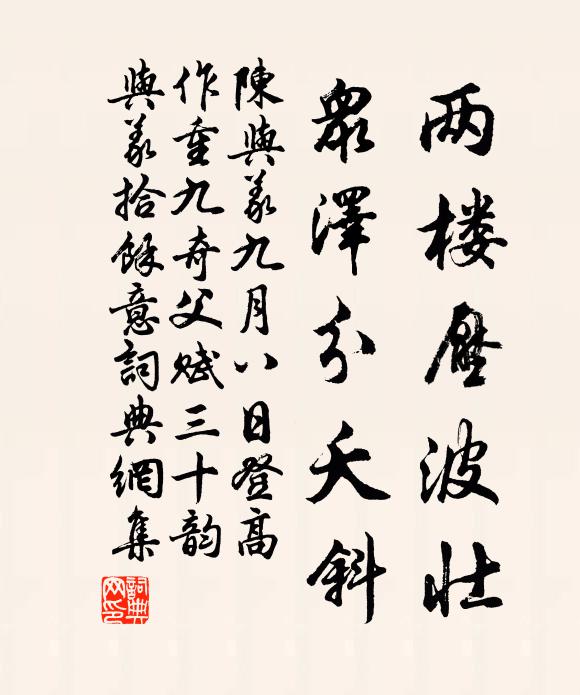 两楼壓波壮
眾澤分夭斜
陳與義九月八日登高
作重九奇父賦三十韵
與義拾餘意詞典網集
詞典
网印